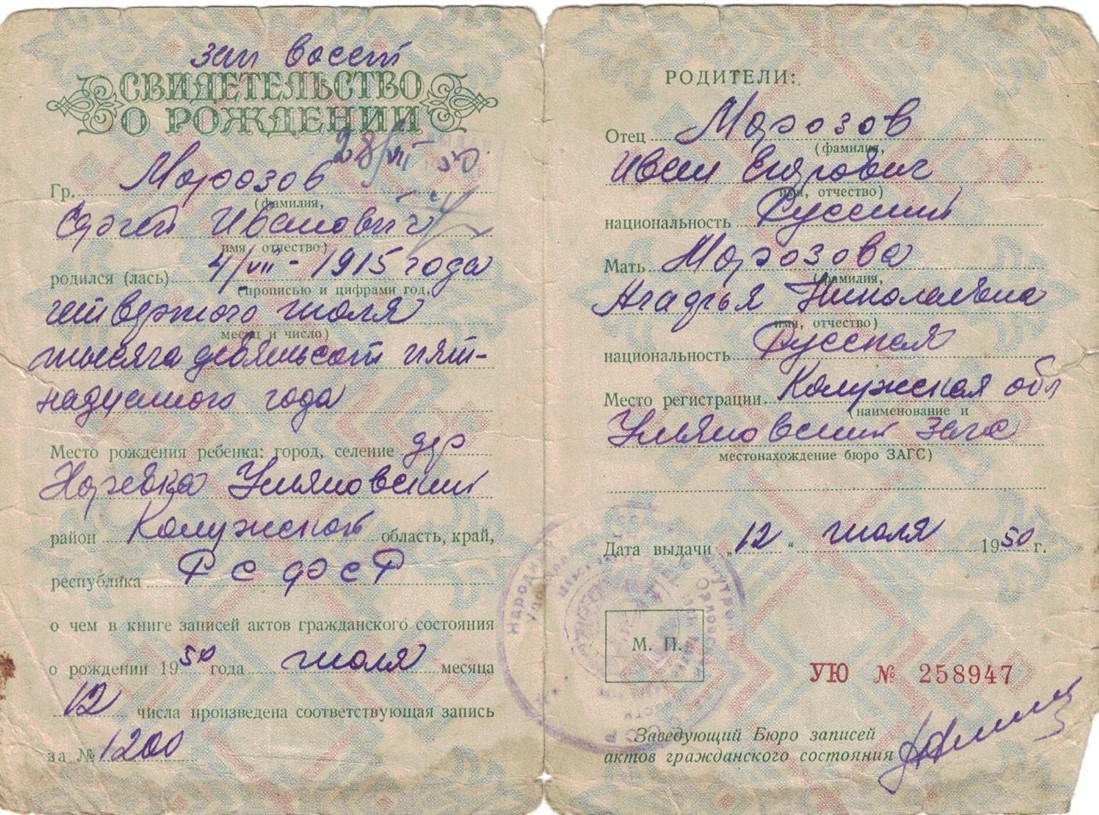 зап восст
СВИДЕТЕЛЬСТВО
О РОЖДЕНИИ
28/VII 50
Гр. Морозов
(фамилия,
Сергей Иванович
имя, отчество)
родился (лась) 4/VII - 1915 года
(прописью и цифрами год,
четвертого июля
месяц и число)
тысяча девятьсот пят-
надцатого года
Место рождения ребенка: город, селение дер
Ульяновский
район Калужской область, край,
республика РСФСР
о чем в книге записей актов гражданского состояния
о рождении 1950 года июля месяца
12 числа произведена соответствующая запись
за № 1200
РОДИТЕЛИ:
Отец Морозов
(фамилия,
Иван Егорович
имя, отчество)
национальность Русский
Мать Морозова
(фамилия,
Николаевна
имя, отчество)
национальность Русская
Место регистрации Калужская обл
наименование и
Ульяновский загс
местонахождение бюро ЗАГС)
Дата выдачи „12“ июля 1950 г.
М. П.
УЮ № 258947
Заведующий Бюро записей
актов гражданского состояния